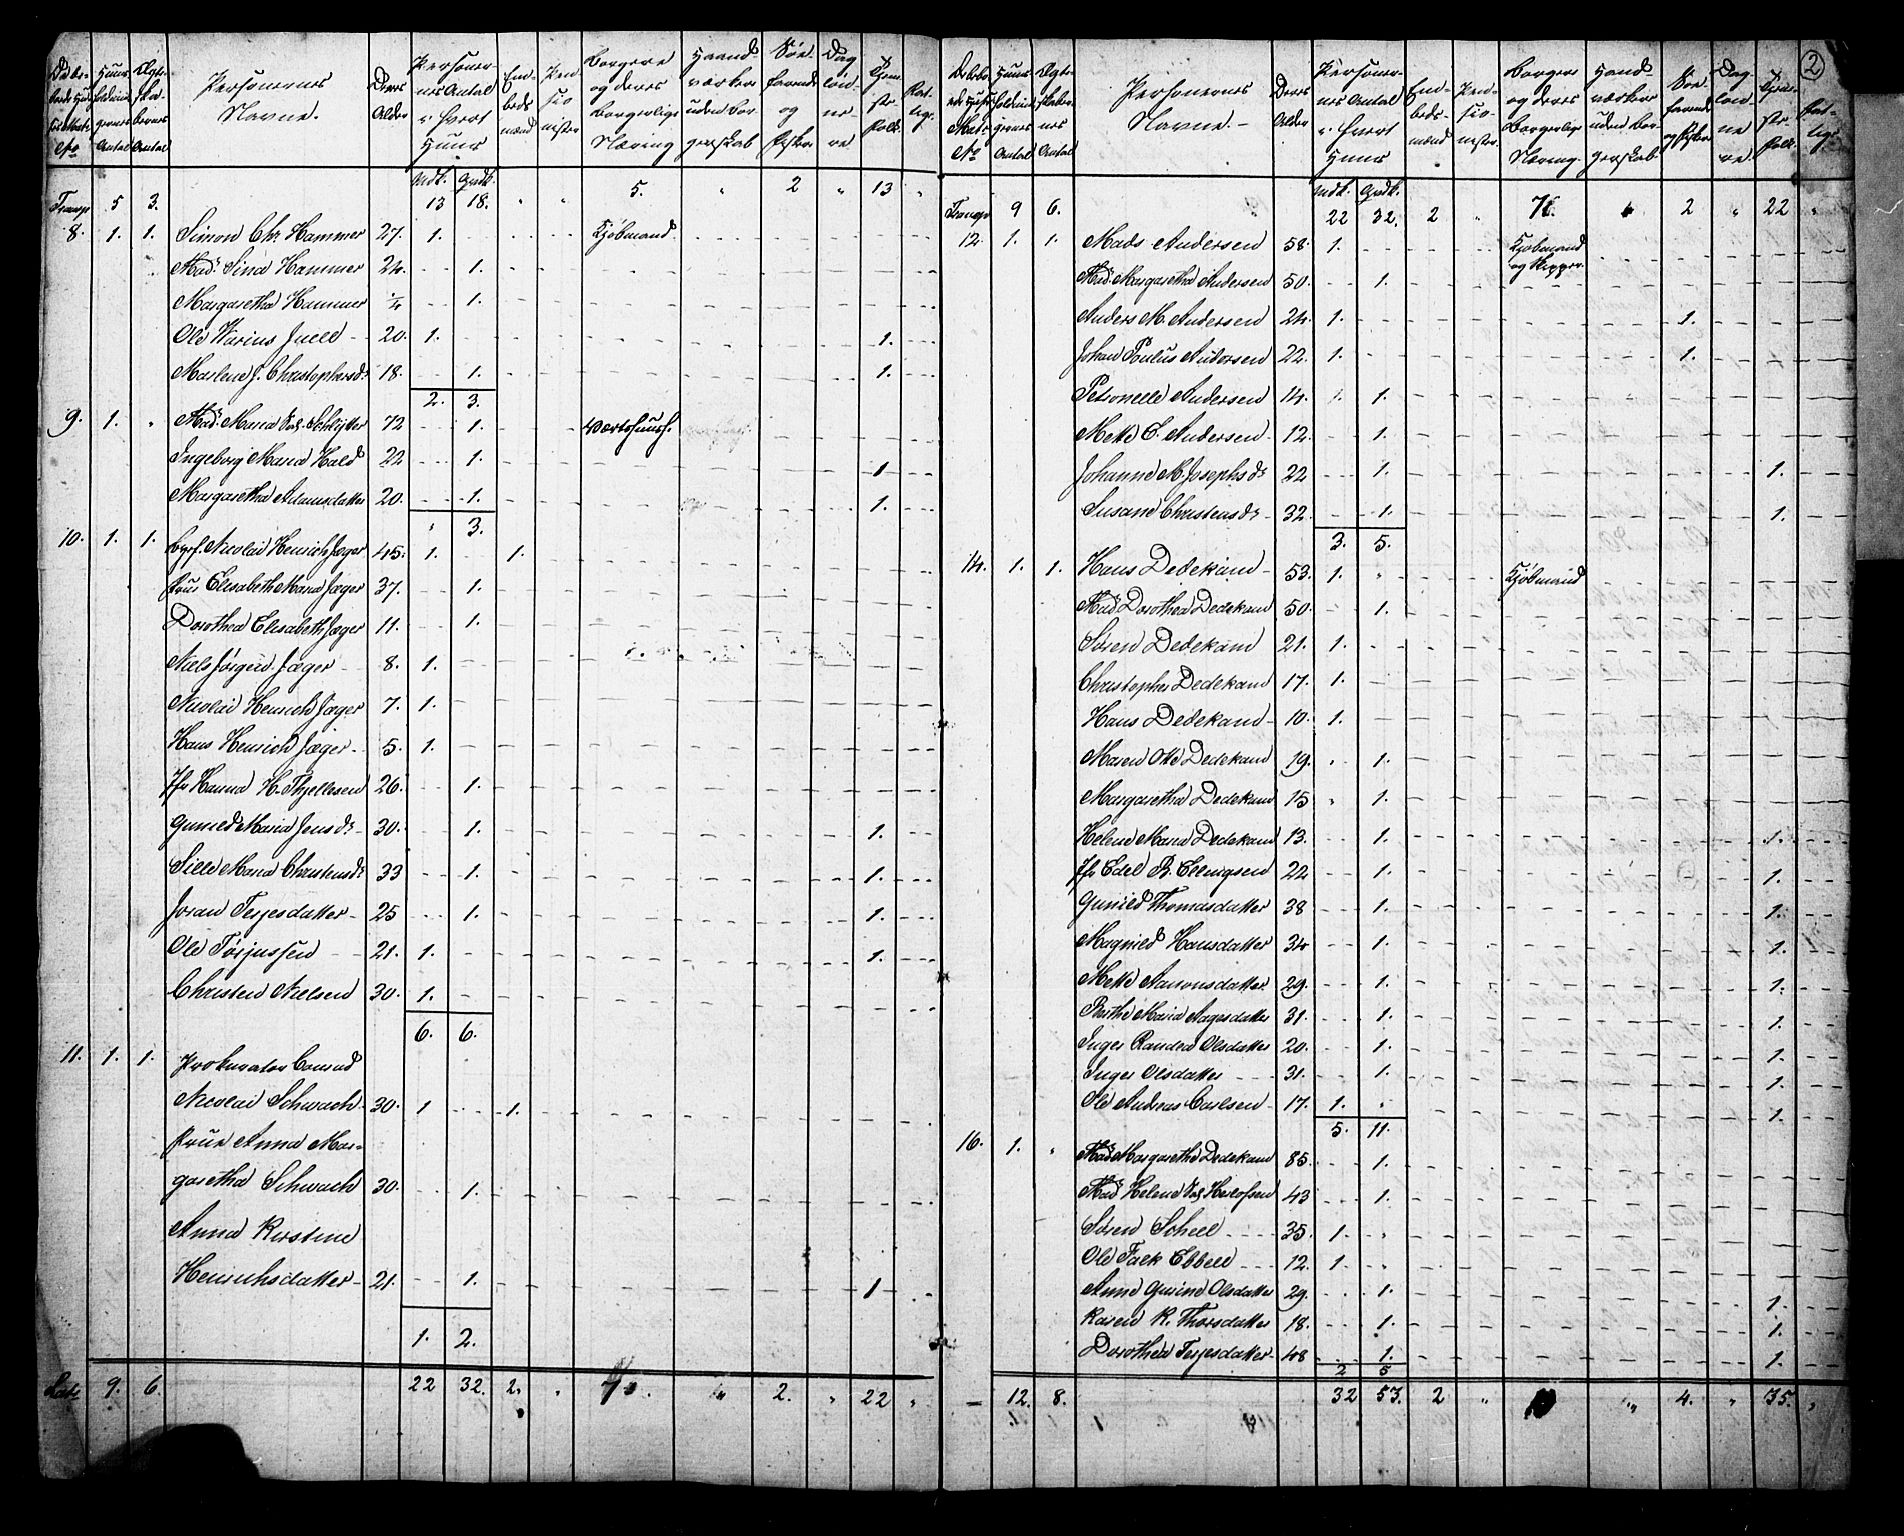 Personernes Navne.
Deres Alder
Personernes Antal i hvert Huus
Embedsmænd
Pensionister
Borgere og deres borgerlige Næring
Haandværkere uden Borgerskab
Søefarende og Fiskere
Daglønnere
Tjenestefolk
Mdk. Qvdk.
Transp 5 3. 13 18. " " 5. " 2 " 13 "
8. 1. 1. Simon Chr. Hammer 27. 1. Kjøbmand
Mad. Sina Hammer 24. 1.
Margaretha Hammer 1/4 1.
Ole Warius Juell 20. 1. 1.
Marlene J. Christophersdr 18. 1. 1.
2. 3.
9. 1. " Mad. Maria Sal. Schlytter 72 1. Værtshuush.
Ingeborg Maria Hald 22 1. 1.
Margaretha Adamsdatter 20. 1. 1.
" 3.
10. 1. 1. Byef. Nicolai Henrich Jæger 45. 1. 1.
Frue Elisabeth Maria Jæger 37. 1.
Dorothea Elisabeth Jæger 11. 1.
Niels Jørgen Jæger 8. 1.
Nicolai Henrich Jæger 7. 1.
Hans Henrich Jæger 5. 1.
Jfr Hanna H. Thjellesen 26. 1.
Gunild Maria Jensdr 30. 1. 1.
Sille Maria Christensdr 33 1. 1.
Joran Terjesdatter 25 1. 1.
Ole Torjussen 21. 1. 1.
Christen Nielsen 30. 1.
6. 6.
11. 1. 1. Prokurator Conrad
Nicolai Schwach 30. 1 1.
Frue Anna Mar-
garetha Schwach 30. 1.
Anna Kirstine
Henrichsdatter 21. 1. 1
1. 2.
Lats 9. 6. 22 32. 2. " 7. " 2. " 22 "
2
Personernes Navne.
Deres Alder
Personernes Antal i hvert Huus
Embedsmænd
Pensionister
Borgere og deres borgerlige Næring.
Haandværkere uden Borgerskab
Søefarende og Fiskere
Daglønnere
Mdk. Qvdk.
Transp 9 6. 22 32. 2 " 7. " 2 " 22 "
12. 1. 1. Mads Andersen 58. 1. Kjøbmand
og Skipper.
Mad. Margaretha Andersen 50. 1.
Anders M. Andersen 24. 1. 1.
Johan Paulus Andersen 22. 1. 1.
Petronelle Andersen 14. 1.
Mette C. Andersen 12. 1.
Johanne M. Josephsdr 22 1. 1.
Susane Christensdr 32. 1. 1.
3. 5.
14. 1. 1. Hans Dedekam 53. 1. " Kjøbmand
Mad Dorothea Dedekam 50. 1.
Søren Dedekam 21. 1.
Christopher Dedekam 17. 1.
Hans Dedekam 10. 1.
Maren Otte Dedekam 19. " 1.
Margaretha Dedekam 15 " 1.
Helene Maria Dedekam 13. 1. 1.
Jfr Edel B. Ellingsen 22 1. 1.
Gunild Thomasdatter 38 1. 1.
Magnild Hansdatter 34 1. 1.
Mette Aanonsdatter 29. 1. 1.
Birthe Maria Aagesdatter 31. 1. 1.
Inger Randea Olsdatter 20. 1. 1.
Inger Olsdatter 31. 1. 1.
Ole Andreas Carlsen 17. 1. " 1.
5. 11.
16. 1. " Mad Margarethe Dedekam 85. 1.
Mad Helene Sal. Herlofsen 43 1.
Søren Scheel 35. 1. "
Ole Falk Ebbell 12. 1. "
Anne Gurine Olsdatter 29. 1. 1.
Karen K. Thorsdatter 18. 1. 1.
Dorothea Terjesdatter 48 1. 1.
2 5
12. 8. 32 53. 2 " " 4. " 35. "